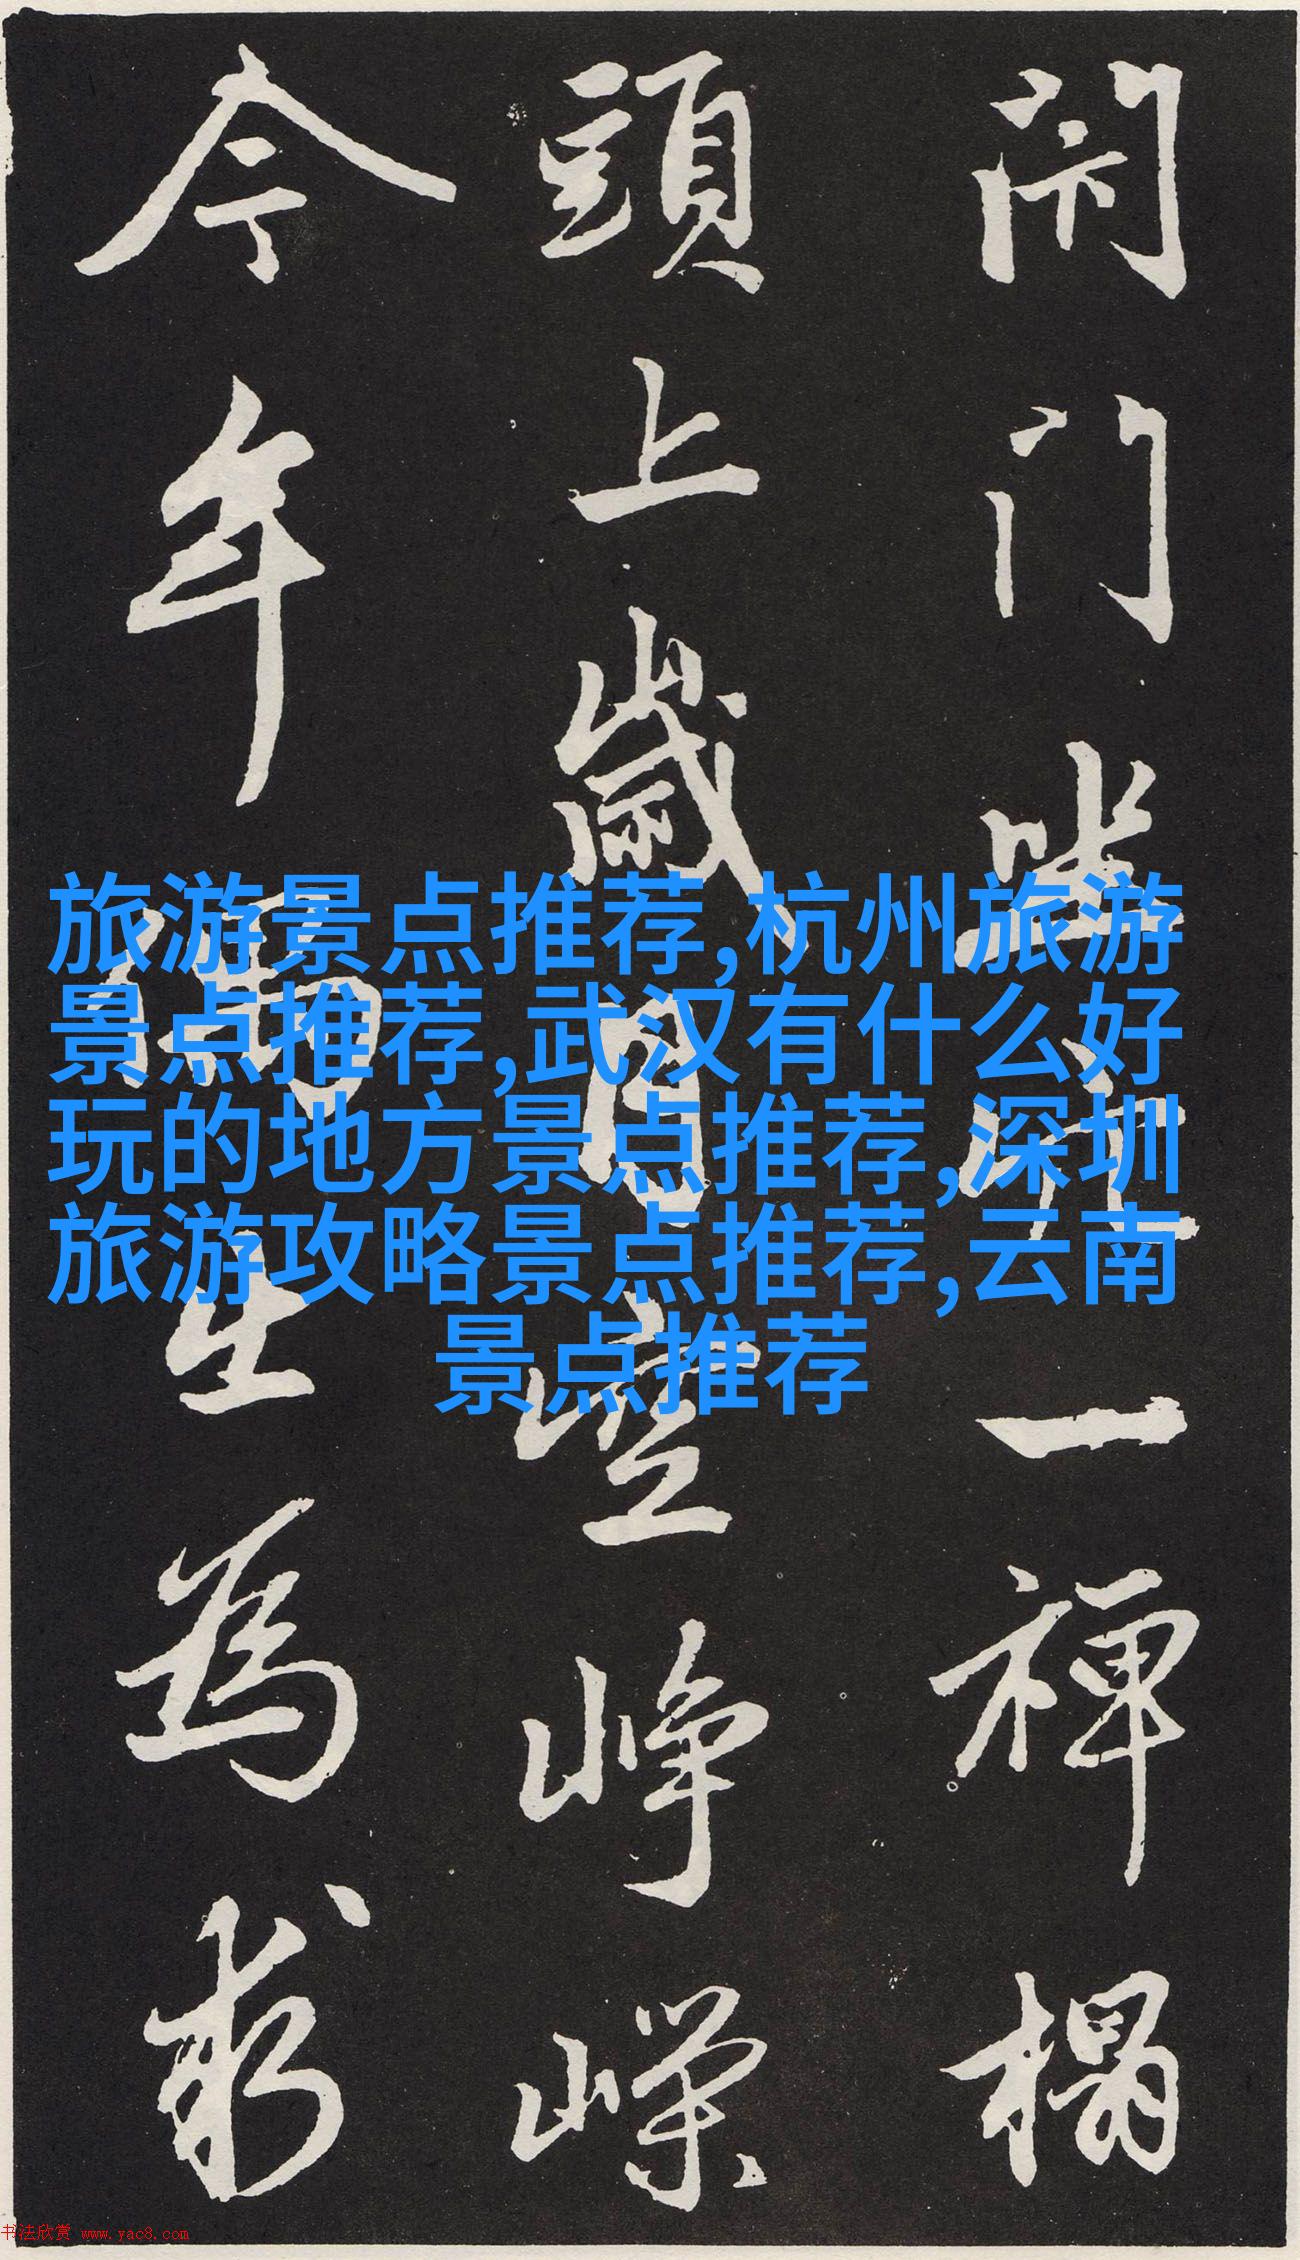 闭门坐穴一禅榻
頭上歲月空崢嶸
今年偶出為求
旅游景点推荐,杭州旅游
景点推荐,武汉有什么好
玩的地方景点推荐,深圳
旅游攻略景点推荐,云南
景点推荐
书法欣赏 www.yac8.com